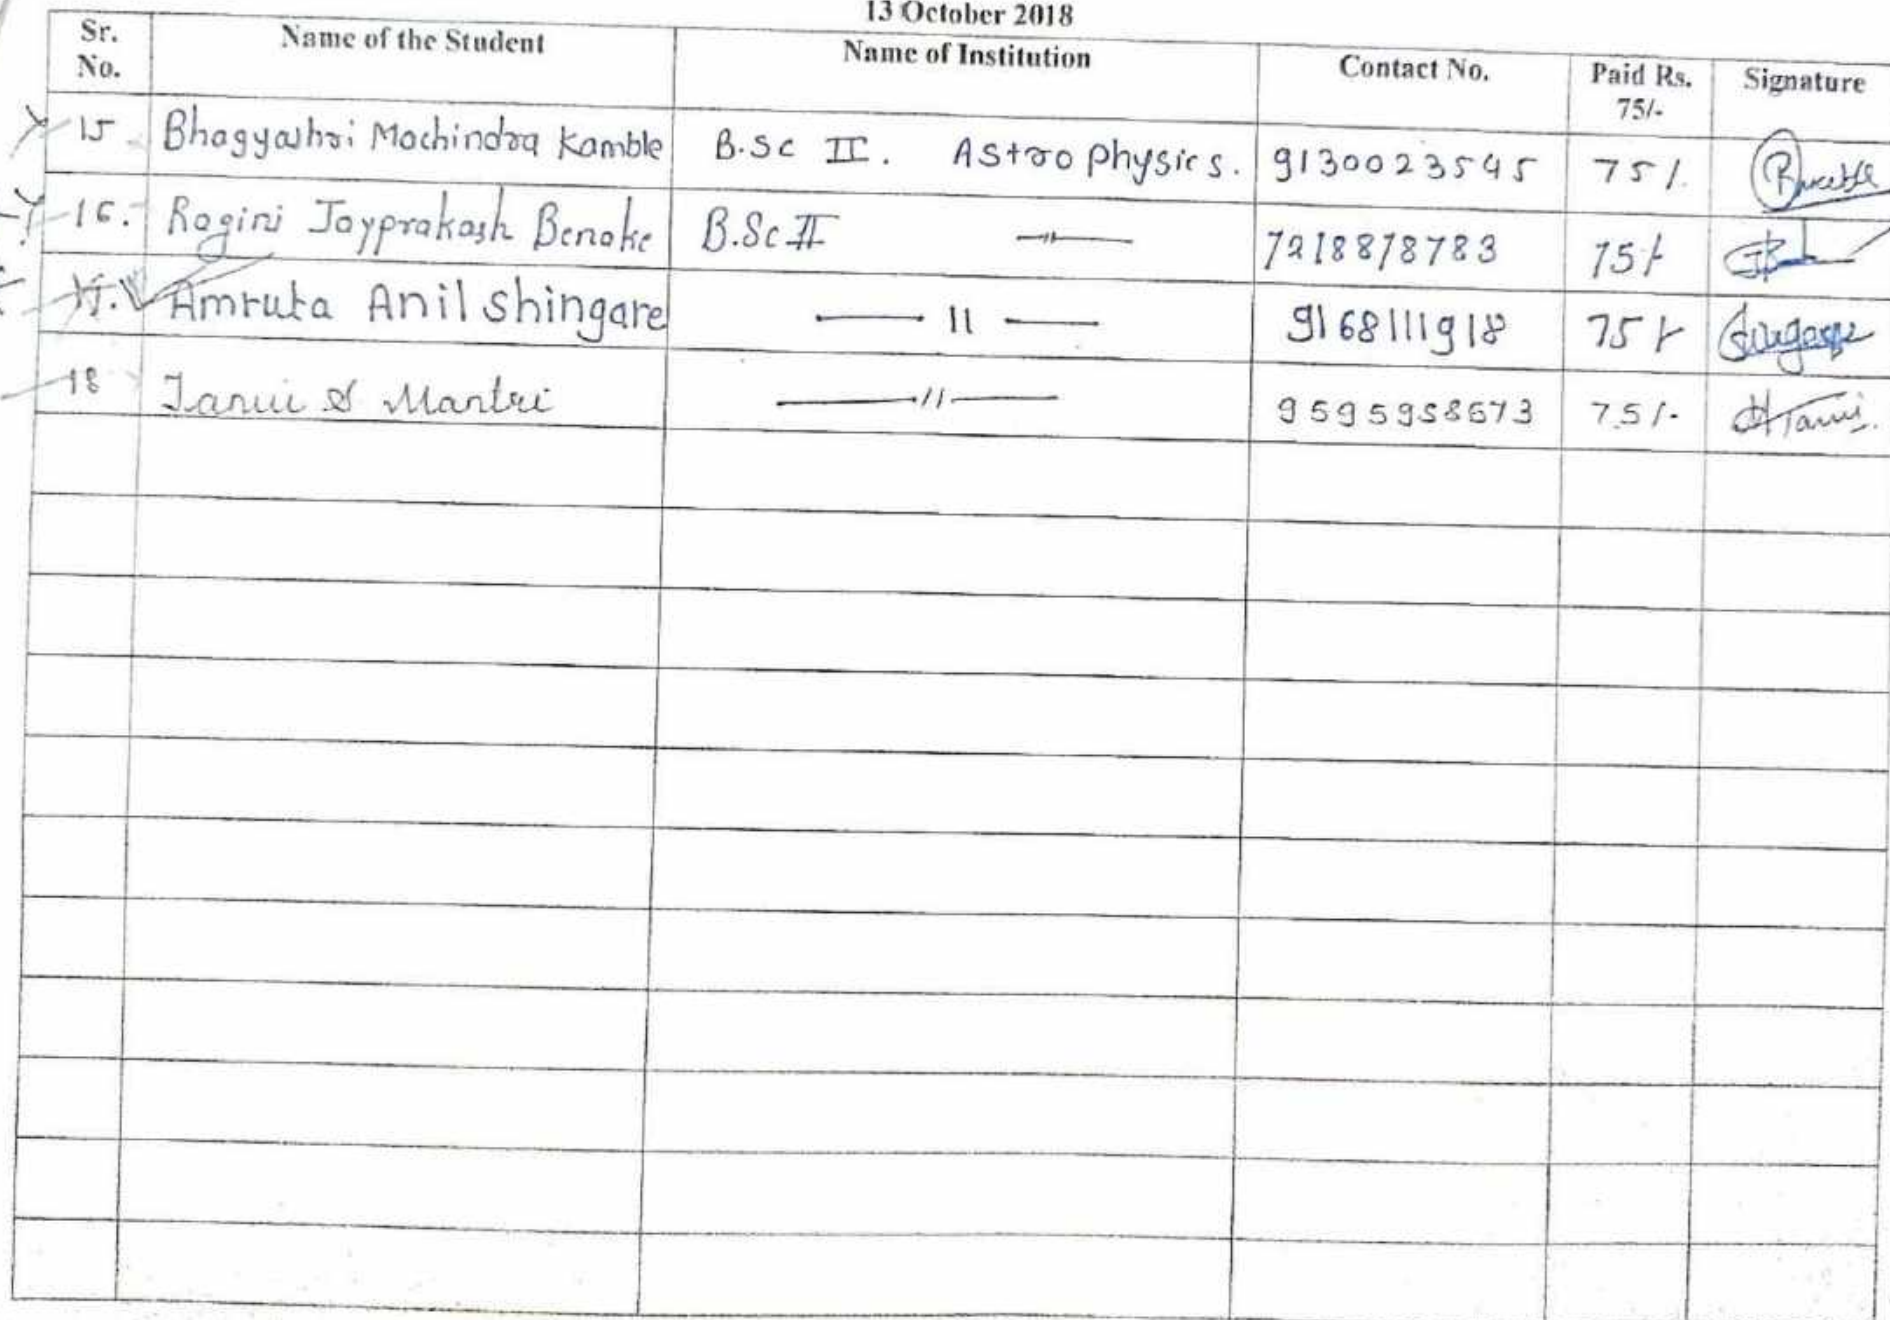 13 October 2018
Sr. No. Name of the Student Name of Institution Contact No. Paid Rs. 75/- Signature
15 Bhagyashri Mochindra Kamble B.Sc II. Astro physics. 9130023545 75/.
16. Ragini Jayprakash Benake B.Sc II —"— 7218878783 75/-
17. Amruta Anil Shingare — 11 — 9168111918 75/-
18 Tanvi S Mantri — 11 — 9595958673 75/- Tanvi.